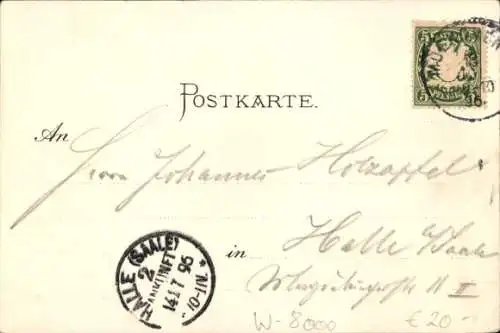 POSTKARTE.
An
Herrn Johannes Holzapfel
in Halle a/Saale
Magdeburgerstr. 11 II
HALLE (SAALE)
2
ANKUNFT
14 1 7 96
10-11N.
W-8000
€20-